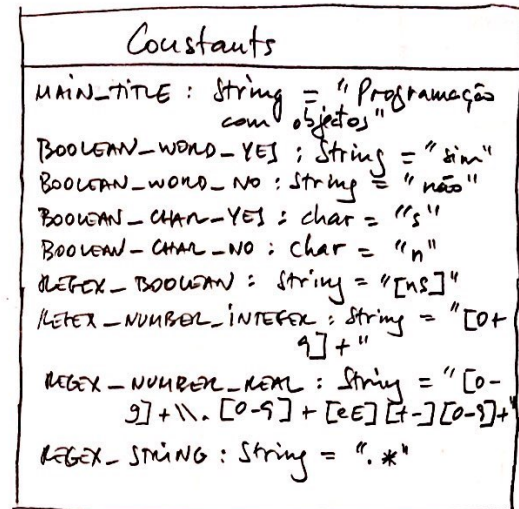 Constants
MAIN_TITLE : String = "Programação
com objetos"
BOOLEAN_WORD_YES : String = "sim"
BOOLEAN_WORD_NO : String = "não"
BOOLEAN_CHAR_YES : char = "s"
BOOLEAN_CHAR_NO : char = "n"
REGEX_BOOLEAN : String = "[ns]"
REGEX_NUMBER_INTEGER : String = "[0+
9]+"
REGEX_NUMBER_REAL : String = "[0-
9]+\\.[0-9]+[eE][+-][0-9]+"
REGEX_STRING : String = ".*"